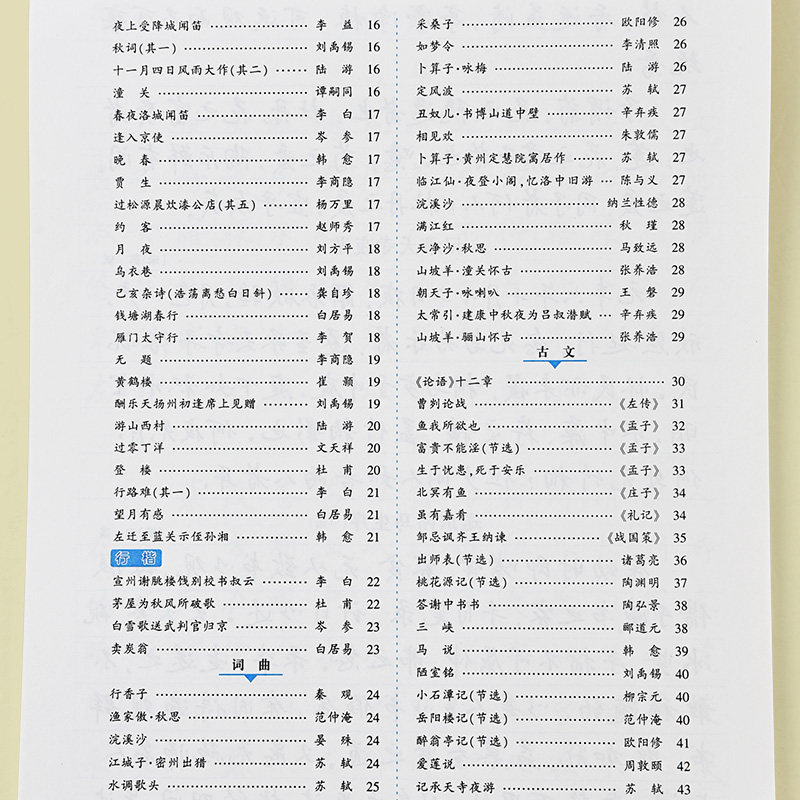 夜上受降城闻笛 ………… 李 益 16
秋词(其一) ………… 刘禹锡 16
十一月四日风雨大作(其二) …… 陆 游 16
潼 关 ………… 谭嗣同 16
春夜洛城闻笛 ………… 李 白 17
逢入京使 ………… 岑 参 17
晚 春 ………… 韩 愈 17
贾 生 ………… 李商隐 17
过松源晨炊漆公店(其五) …… 杨万里 17
约 客 ………… 赵师秀 17
月 夜 ………… 刘方平 18
乌衣巷 ………… 刘禹锡 18
己亥杂诗(浩荡离愁白日斜) …… 龚自珍 18
钱塘湖春行 ………… 白居易 18
雁门太守行 ………… 李 贺 18
无 题 ………… 李商隐 19
黄鹤楼 ………… 崔 颢 19
酬乐天扬州初逢席上见赠 ………… 刘禹锡 19
游山西村 ………… 陆 游 20
过零丁洋 ………… 文天祥 20
登 楼 ………… 杜 甫 20
行路难(其一) ………… 李 白 21
望月有感 ………… 白居易 21
左迁至蓝关示侄孙湘 ………… 韩 愈 21
行 楷
宣州谢朓楼饯别校书叔云 ………… 李 白 22
茅屋为秋风所破歌 ………… 杜 甫 22
白雪歌送武判官归京 ………… 岑 参 23
卖炭翁 ………… 白居易 23
词 曲
行香子 ………… 秦 观 24
渔家傲·秋思 ………… 范仲淹 24
浣溪沙 ………… 晏 殊 24
江城子·密州出猎 ………… 苏 轼 24
水调歌头 ………… 苏 轼 25
采桑子 ………… 欧阳修 26
如梦令 ………… 李清照 26
卜算子·咏梅 ………… 陆 游 26
定风波 ………… 苏 轼 27
丑奴儿·书博山道中壁 ………… 辛弃疾 27
相见欢 ………… 朱敦儒 27
卜算子·黄州定慧院寓居作 …… 苏 轼 27
临江仙·夜登小阁,忆洛中旧游 … 陈与义 27
浣溪沙 ………… 纳兰性德 28
满江红 ………… 秋 瑾 28
天净沙·秋思 ………… 马致远 28
山坡羊·潼关怀古 ………… 张养浩 28
朝天子·咏喇叭 ………… 王 磐 29
太常引·建康中秋夜为吕叔潜赋 … 辛弃疾 29
山坡羊·骊山怀古 ………… 张养浩 29
古 文
《论语》十二章 ………… 30
曹刿论战 ………… 《左传》 31
鱼我所欲也 ………… 《孟子》 32
富贵不能淫(节选) ………… 《孟子》 33
生于忧患,死于安乐 ………… 《孟子》 33
北冥有鱼 ………… 《庄子》 34
虽有嘉肴 ………… 《礼记》 34
邹忌讽齐王纳谏 ………… 《战国策》 35
出师表(节选) ………… 诸葛亮 36
桃花源记(节选) ………… 陶渊明 37
答谢中书书 ………… 陶弘景 38
三 峡 ………… 郦道元 38
马 说 ………… 韩 愈 39
陋室铭 ………… 刘禹锡 40
小石潭记(节选) ………… 柳宗元 40
岳阳楼记(节选) ………… 范仲淹 40
醉翁亭记(节选) ………… 欧阳修 41
爱莲说 ………… 周敦颐 42
记承天寺夜游 ………… 苏 轼 43